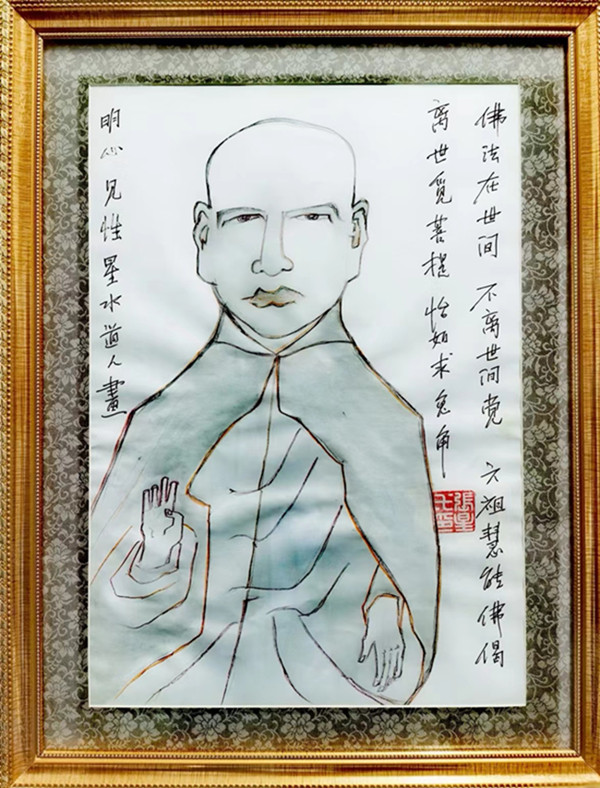 佛法在世间 不离世间觉 六祖慧能佛偈
离世觅菩提 恰如求兔角
明心见性星水道人畫